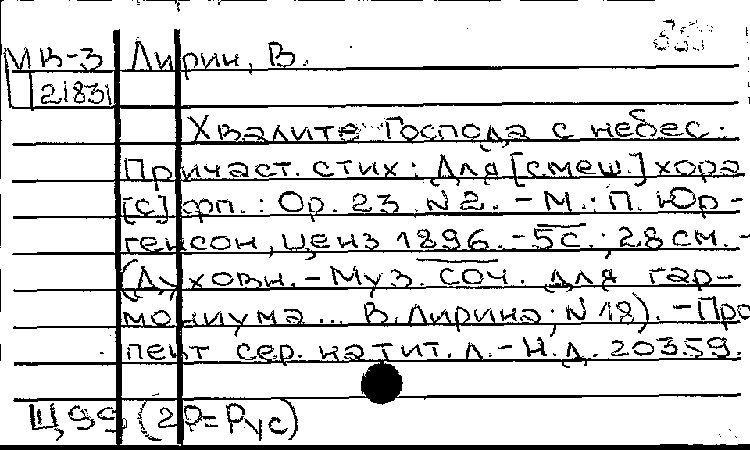 МВ-3 Лирин, В.
21831
Хвалите Господа с небес:
Причаст. стих: Для [смеш.] хора
[с] фп.: Op. 23 N 2. - М.: П. Юр-
генсон, ценз 1896. - 5 с.; 28 см. -
(Духовн.-Муз. соч. для гар-
мониума... В. Лирина; N 18). - Про
пент сер. на тит. л. - Н.д. 20359.
Щ99 (2Р=Рус)